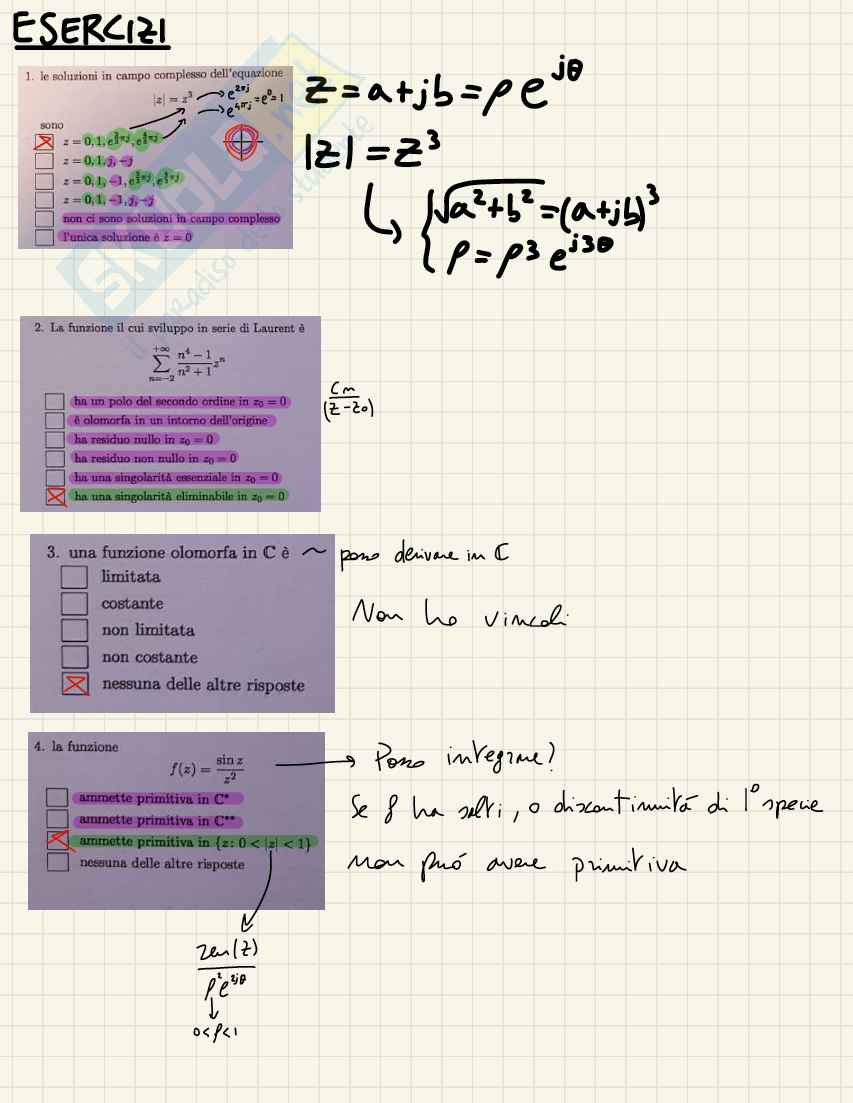 ESERCIZI
1. le soluzioni in campo complesso dell'equazione
|z| = z³ → e^{2πj} → e^{4πj} = e⁰ = 1
sono
z = 0, 1, e^{2/3 πj}, e^{4/3 πj}
z = 0, 1, j, −j
z = 0, 1, −1, e^{2/3 πj}, e^{4/3 πj}
z = 0, 1, −1, j, −j
non ci sono soluzioni in campo complesso
l'unica soluzione è z = 0
z = a + jb = ρ e^{jθ}
|z| = z³
√a² + b² = (a + jb)³
ρ = ρ³ e^{j3θ}
2. La funzione il cui sviluppo in serie di Laurent è
∑_{n=−2}^{+∞} (n⁴ − 1)/(n² + 1) zⁿ
ha un polo del secondo ordine in z₀ = 0
è olomorfa in un intorno dell'origine
ha residuo nullo in z₀ = 0
ha residuo non nullo in z₀ = 0
ha una singolarità essenziale in z₀ = 0
ha una singolarità eliminabile in z₀ = 0
Cn/(z − z₀)
3. una funzione olomorfa in ℂ è ~ posso derivare in ℂ
limitata
costante
non limitata
non costante
nessuna delle altre risposte
Non ho vincoli
4. la funzione
f(z) = sin z / z²
ammette primitiva in C*
ammette primitiva in C**
ammette primitiva in {z: 0 < |z| < 1}
nessuna delle altre risposte
→ Posso integrare?
Se f ha salti, o discontinuitá di 1° specie
non puó avere primitiva
sen(z)/ρ² e^{2jθ}
0 < ρ < 1
il paradiso dello studente